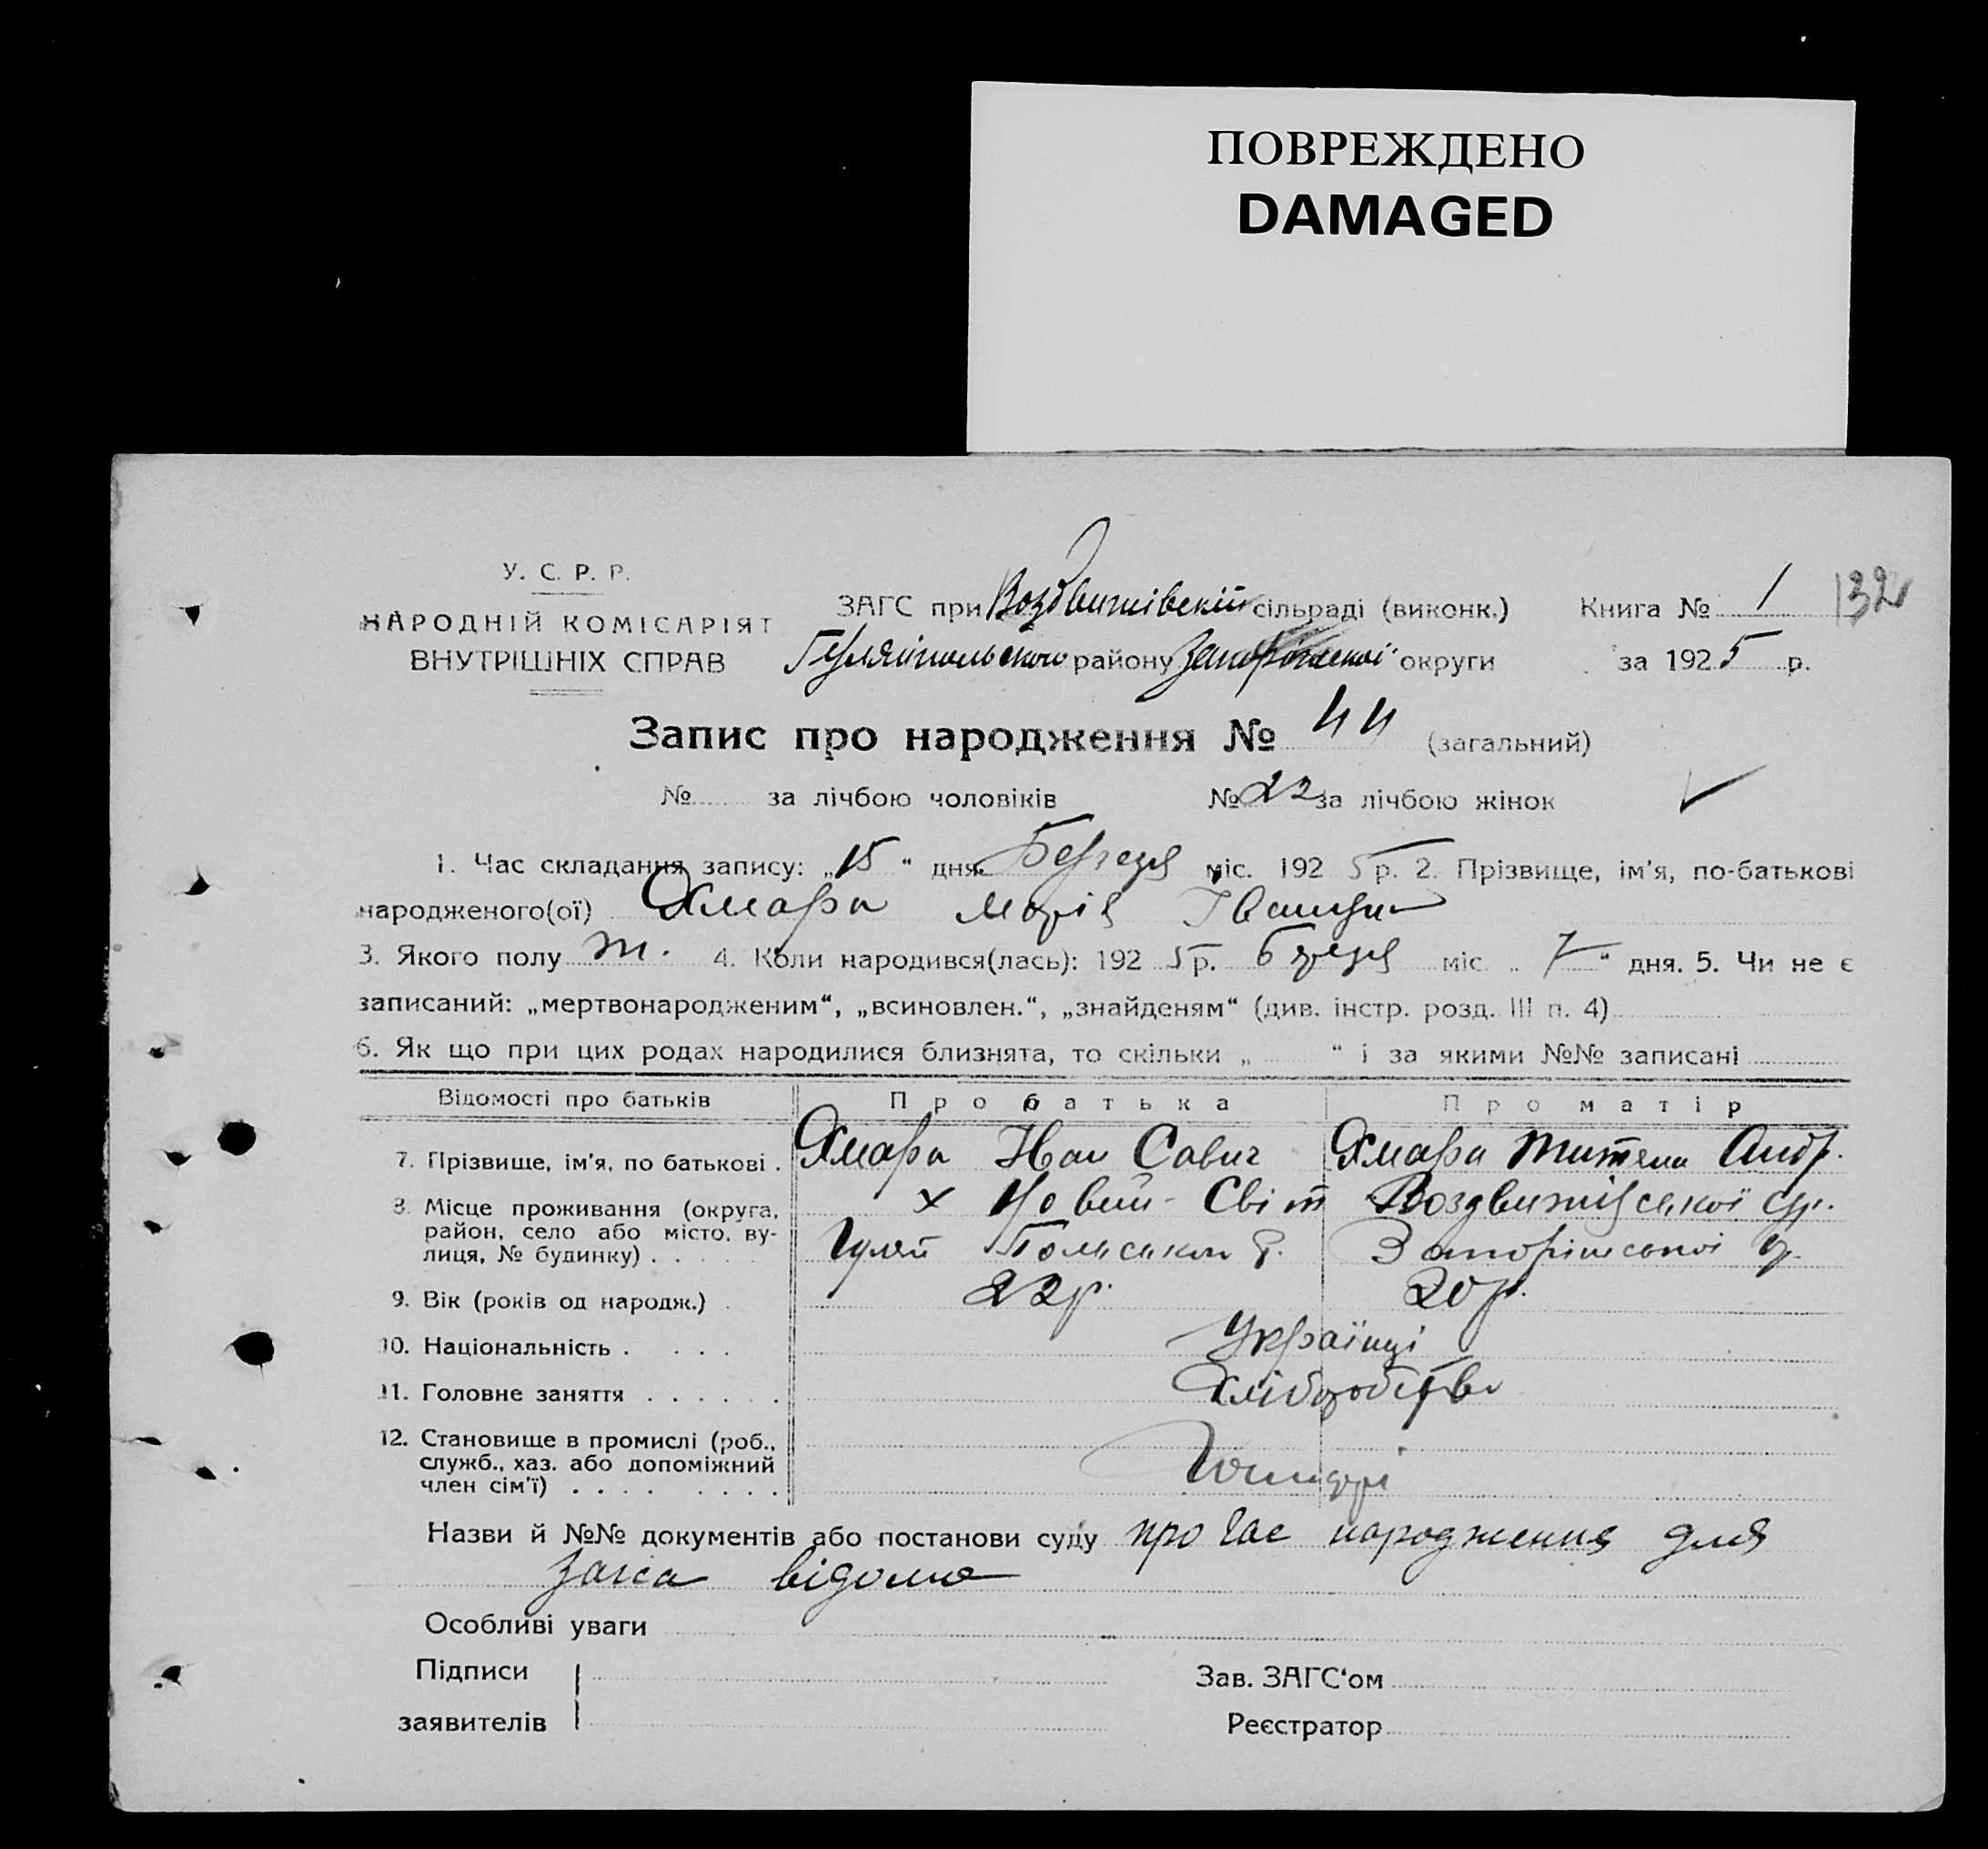 ПОВРЕЖДЕНО
DAMAGED
У. С. Р. Р.
НАРОДНІЙ КОМІСАРІЯТ
ВНУТРІШНІХ СПРАВ
ЗАГС при Воздвижівській сільраді (виконк.)
Гуляйпольського району Запорізької округи
Книга № 1 132
за 1925 р.
Запис про народження № 44 (загальний)
№ за лічбою чоловіків № 22 за лічбою жінок
1. Час складання запису: „15“ дня Березня міс. 1925 р. 2. Прізвище, ім'я, по-батькові
народженого(ої) Хмара Марія Івановна
3. Якого полу ж. 4. Коли народився(лась): 1925 р. березня міс. „7“ дня. 5. Чи не є
записаний: „мертвонародженим“, „всиновлен.“, „знайденям“ (див. інстр. розд. III п. 4)
6. Як що при цих родах народилися близнята, то скільки „ “ і за якими №№ записані
Відомості про батьків Про батька Про матір
7. Прізвище, ім'я, по батькові . Хмара Іван Савич Хмара Титяна Андр.
8. Місце проживання (округа, х Новий-Світ Воздвижівської с/р.
район, село або місто, ву-
лиця, № будинку) . . . . Гуляй Польського р. Запоріжської
9. Вік (років од народж.) . 22 р. 20 р.
10. Національність . . . . Українці
11. Головне заняття . . . . . . Хліборобство
12. Становище в промислі (роб.,
служб., хаз. або допоміжний
член сім'ї) . . . . . . . .
Назви й №№ документів або постанови суду про час народження для
загса відомо
Особливі уваги
Підписи
заявителів
Зав. ЗАГС'ом
Реєстратор